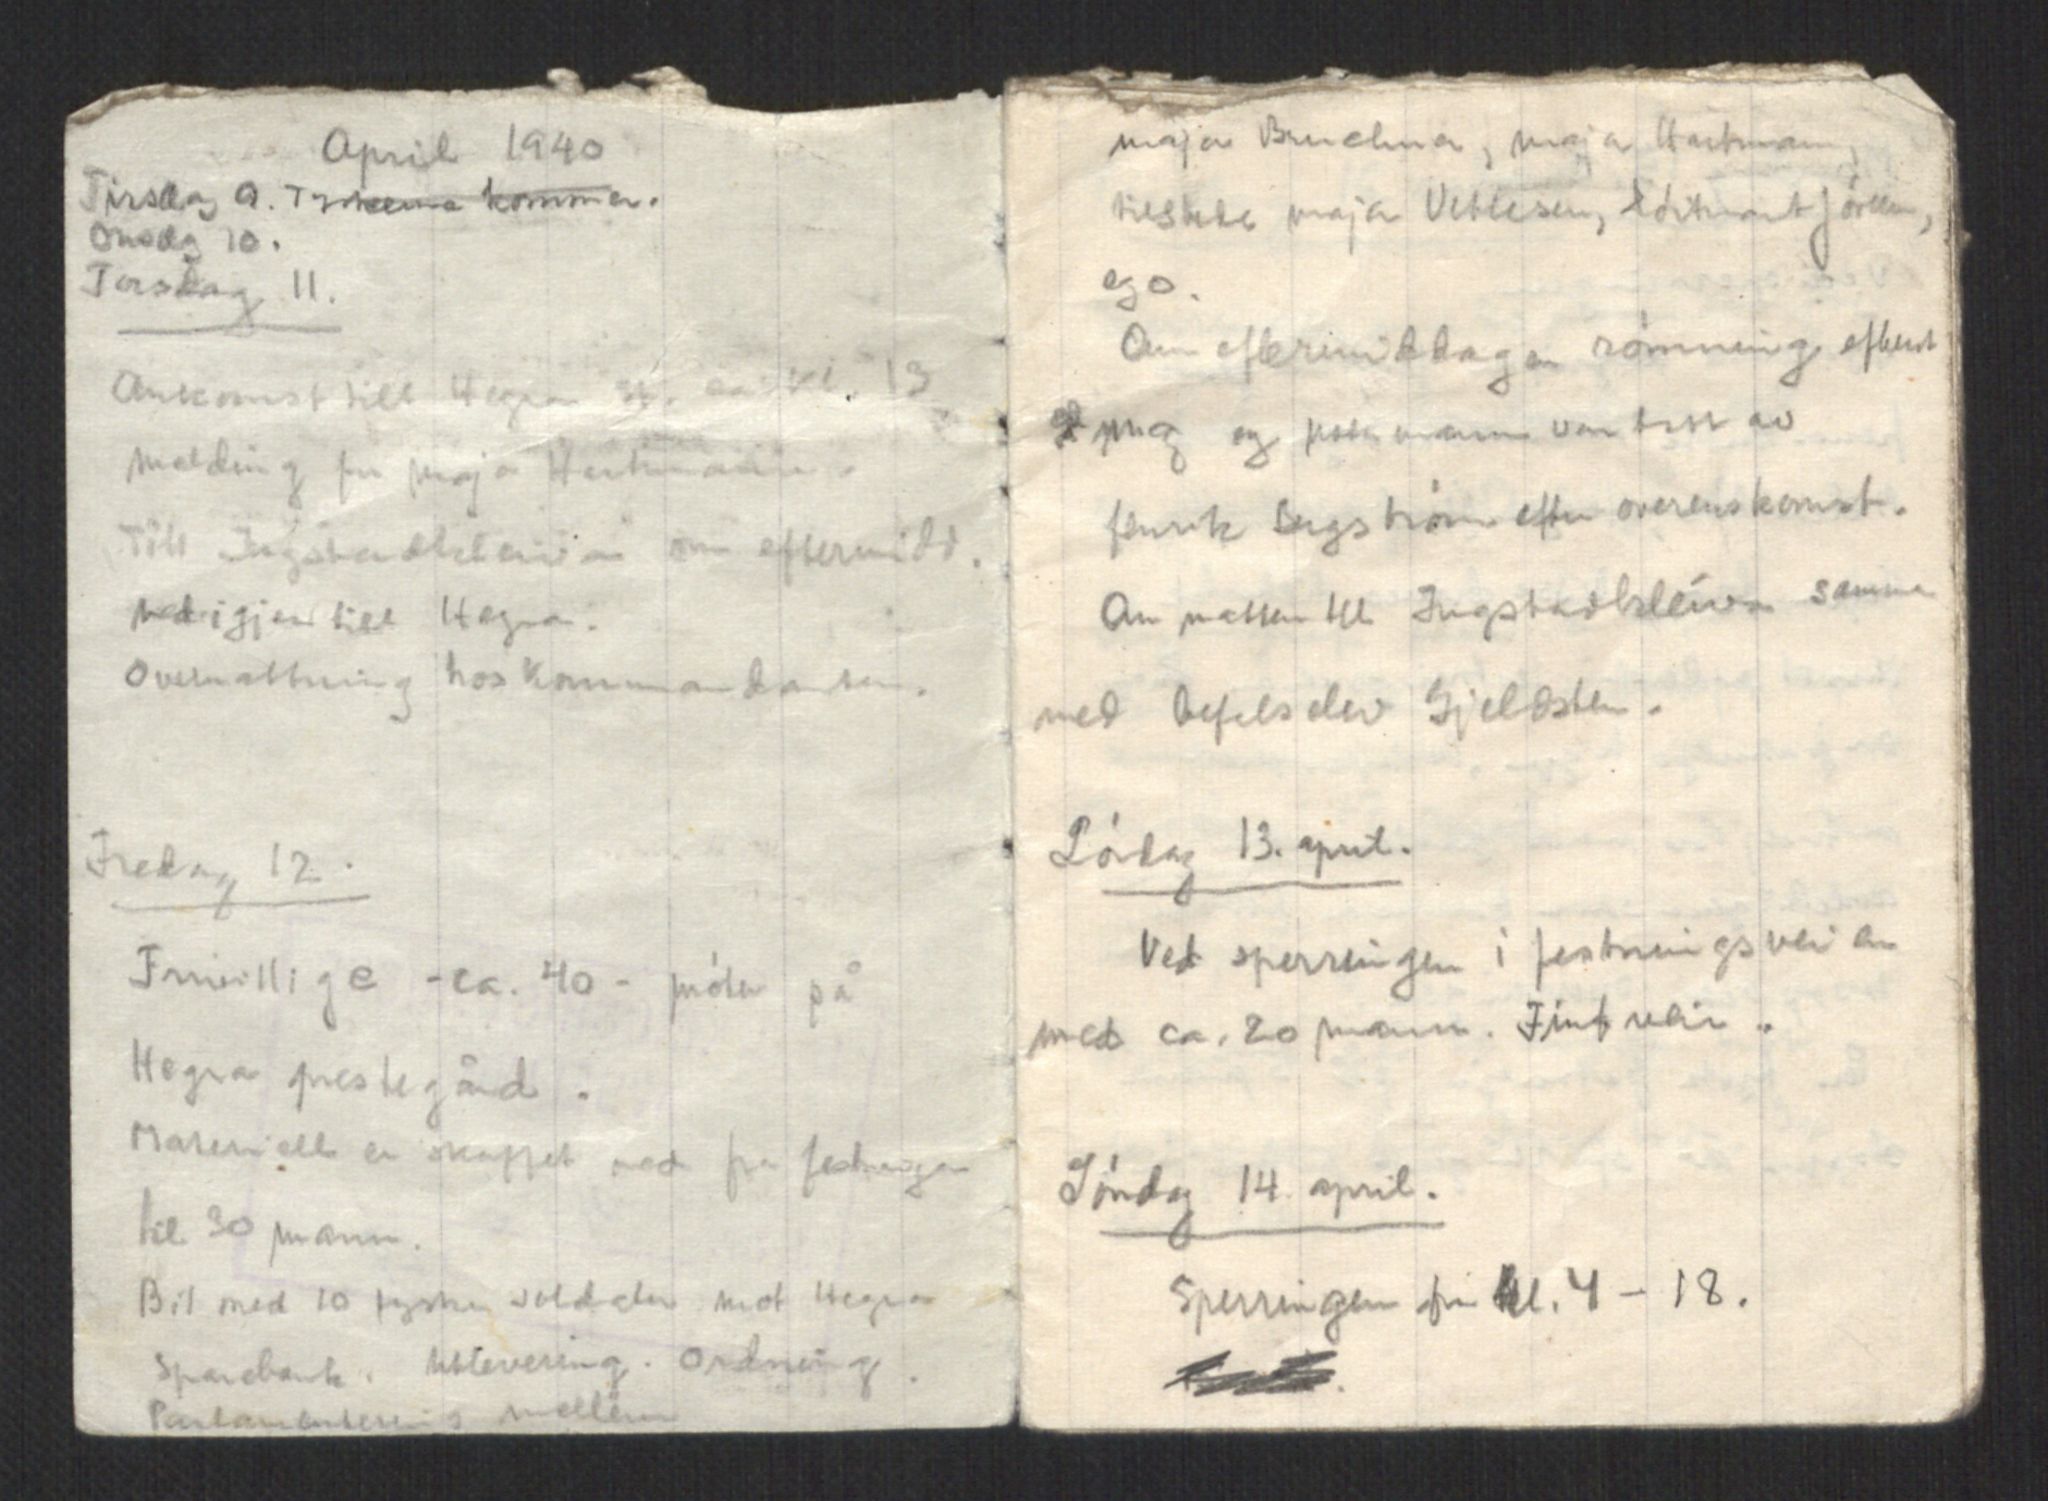 April 1940
Tirsdag 9. Tyskerne kommer.
Onsdg 10.
Torsdag 11.
Ankomst till Hegra st. ca. kl. 13
melding fra major Hartmann.
Till Ingstadkleiva om eftermidd.
ned igjen till Hegra.
Overnattning hos Kommandanten.
Fredag 12.
Frivillige - ca. 40 - möter på
Hegra prestegård.
Materiell er skaffet ned fra festningen
til 30 mann.
Bil med 10 tyske soldater mot Hegra
Sparebank. Utlevering. Ordning.
Parlamentering mellem
major Bruckner, major Hartmann,
tilstede major Vetlesen, löitnant
ego.
Om eftermiddagen römning efterat
jeg og mann var av
fenrik Bergström efter overenskomst.
Om natten til Ingstadkleiva samme
med befalselev Gjeldsten.
Lördag 13. april.
Ved sperringen i festningsveien
med ca. 20 mann. Fint veir.
Söndag 14. april.
Sperringen fra kl. 4 - 18.